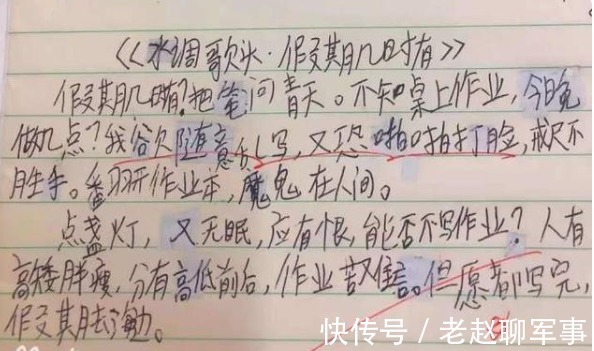 《水调歌头·假期几时有》
假期几时有?把笔问青天。不知桌上作业,今晚
做几点?我欲随意乱写,又恐啪啪打脸,戒尺不
胜手。翻开作业本,魔鬼在人间。
点盏灯,又无眠,应有恨,能否不写作业?人有
高矮胖瘦,分有高低前后,作业难。但愿都写完,
假期去浪。
快传号/老赵聊军事